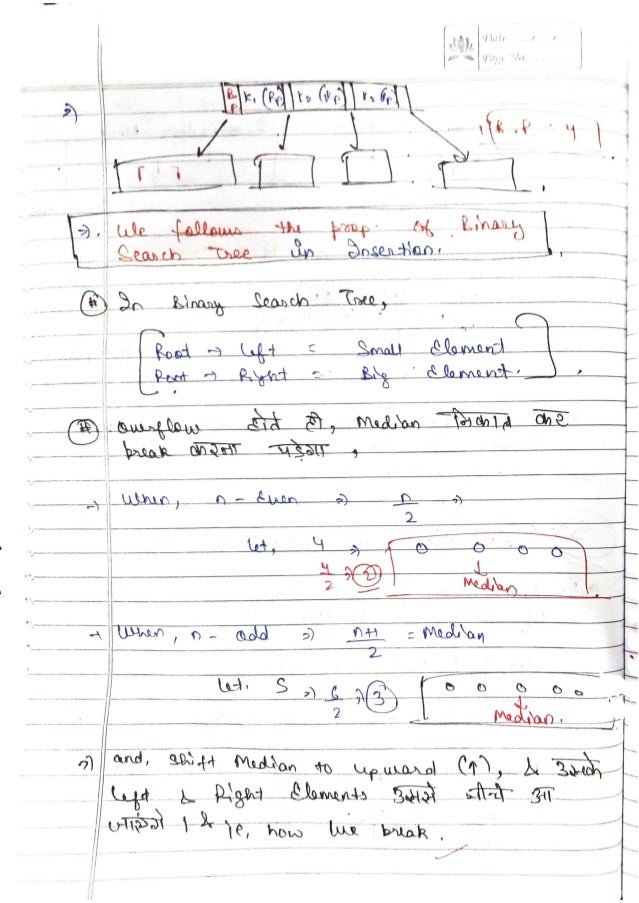 Date / /
Page No.
B.P K₁ (Rp) K₂ (Rp) K₃ (Rp)
⇒)
{B.P - 4}
⇒). We follows the prop. of Binary
Search Tree in Insertion.
(#) In Binary Search Tree,
Root → Left = Small Element
Root → Right = Big Element.
(#) Overflow होते ही, Median निकाल कर
break करना पड़ेगा,
→ When, n - Even ⇒ n/2 ⇒
Let, 4 ⇒ o o o o
4/2 ⇒ 2 Median
→ When, n - odd ⇒ n+1/2 = Median
Let, 5 ⇒ 6/2 ⇒ 3 o o o o o
Median.
⇒) and, Shift Median to upward (↑), & उसके
Left & Right Elements उससे नीचे आ
जाएंगे । & ie, how we break.